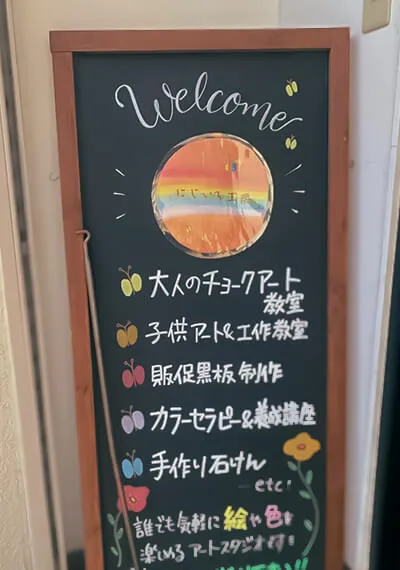 Welcome
にじいろ工房
大人のチョークアート
教室
子供アート&工作教室
販促黒板制作
カラーセラピー&養成講座
手作り石けん
etc!
誰でも気軽に絵や色を
楽しめるアートスタジオです!